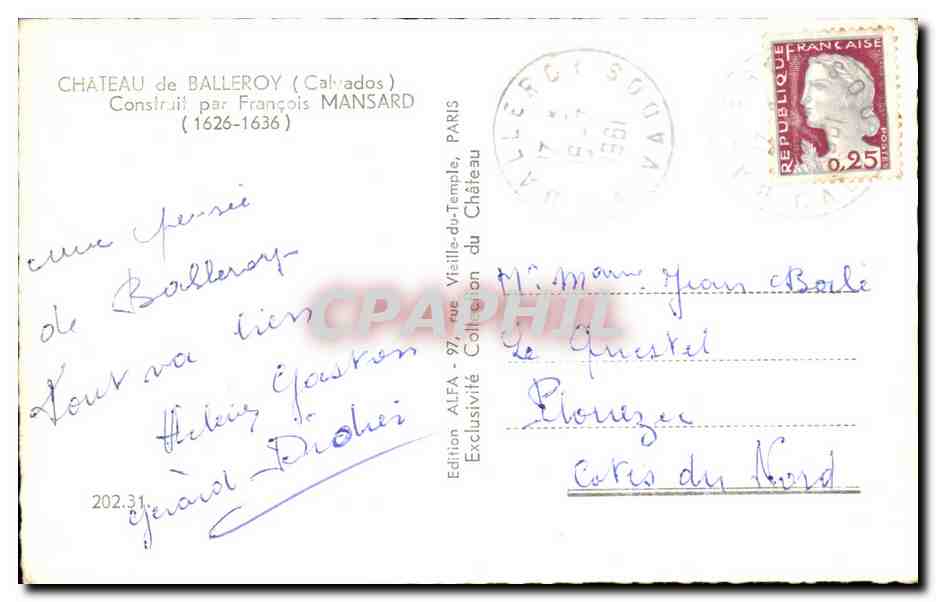 CHÂTEAU de BALLEROY (Calvados)
Construit par François MANSARD
(1626-1636)
une pensée
de Balleroy
Tout va bien
Gaston
Gérard Didier
202.31.
Edition ALFA - 97, rue Vieille-du-Temple, PARIS
Exclusivité Collection du Château
CPAPHIL
BALLEROY
17
1961
REPUBLIQUE FRANÇAISE
POSTES
0,25
Mr. Mme Jean
Le Questel
Plouezec
Cotes du Nord